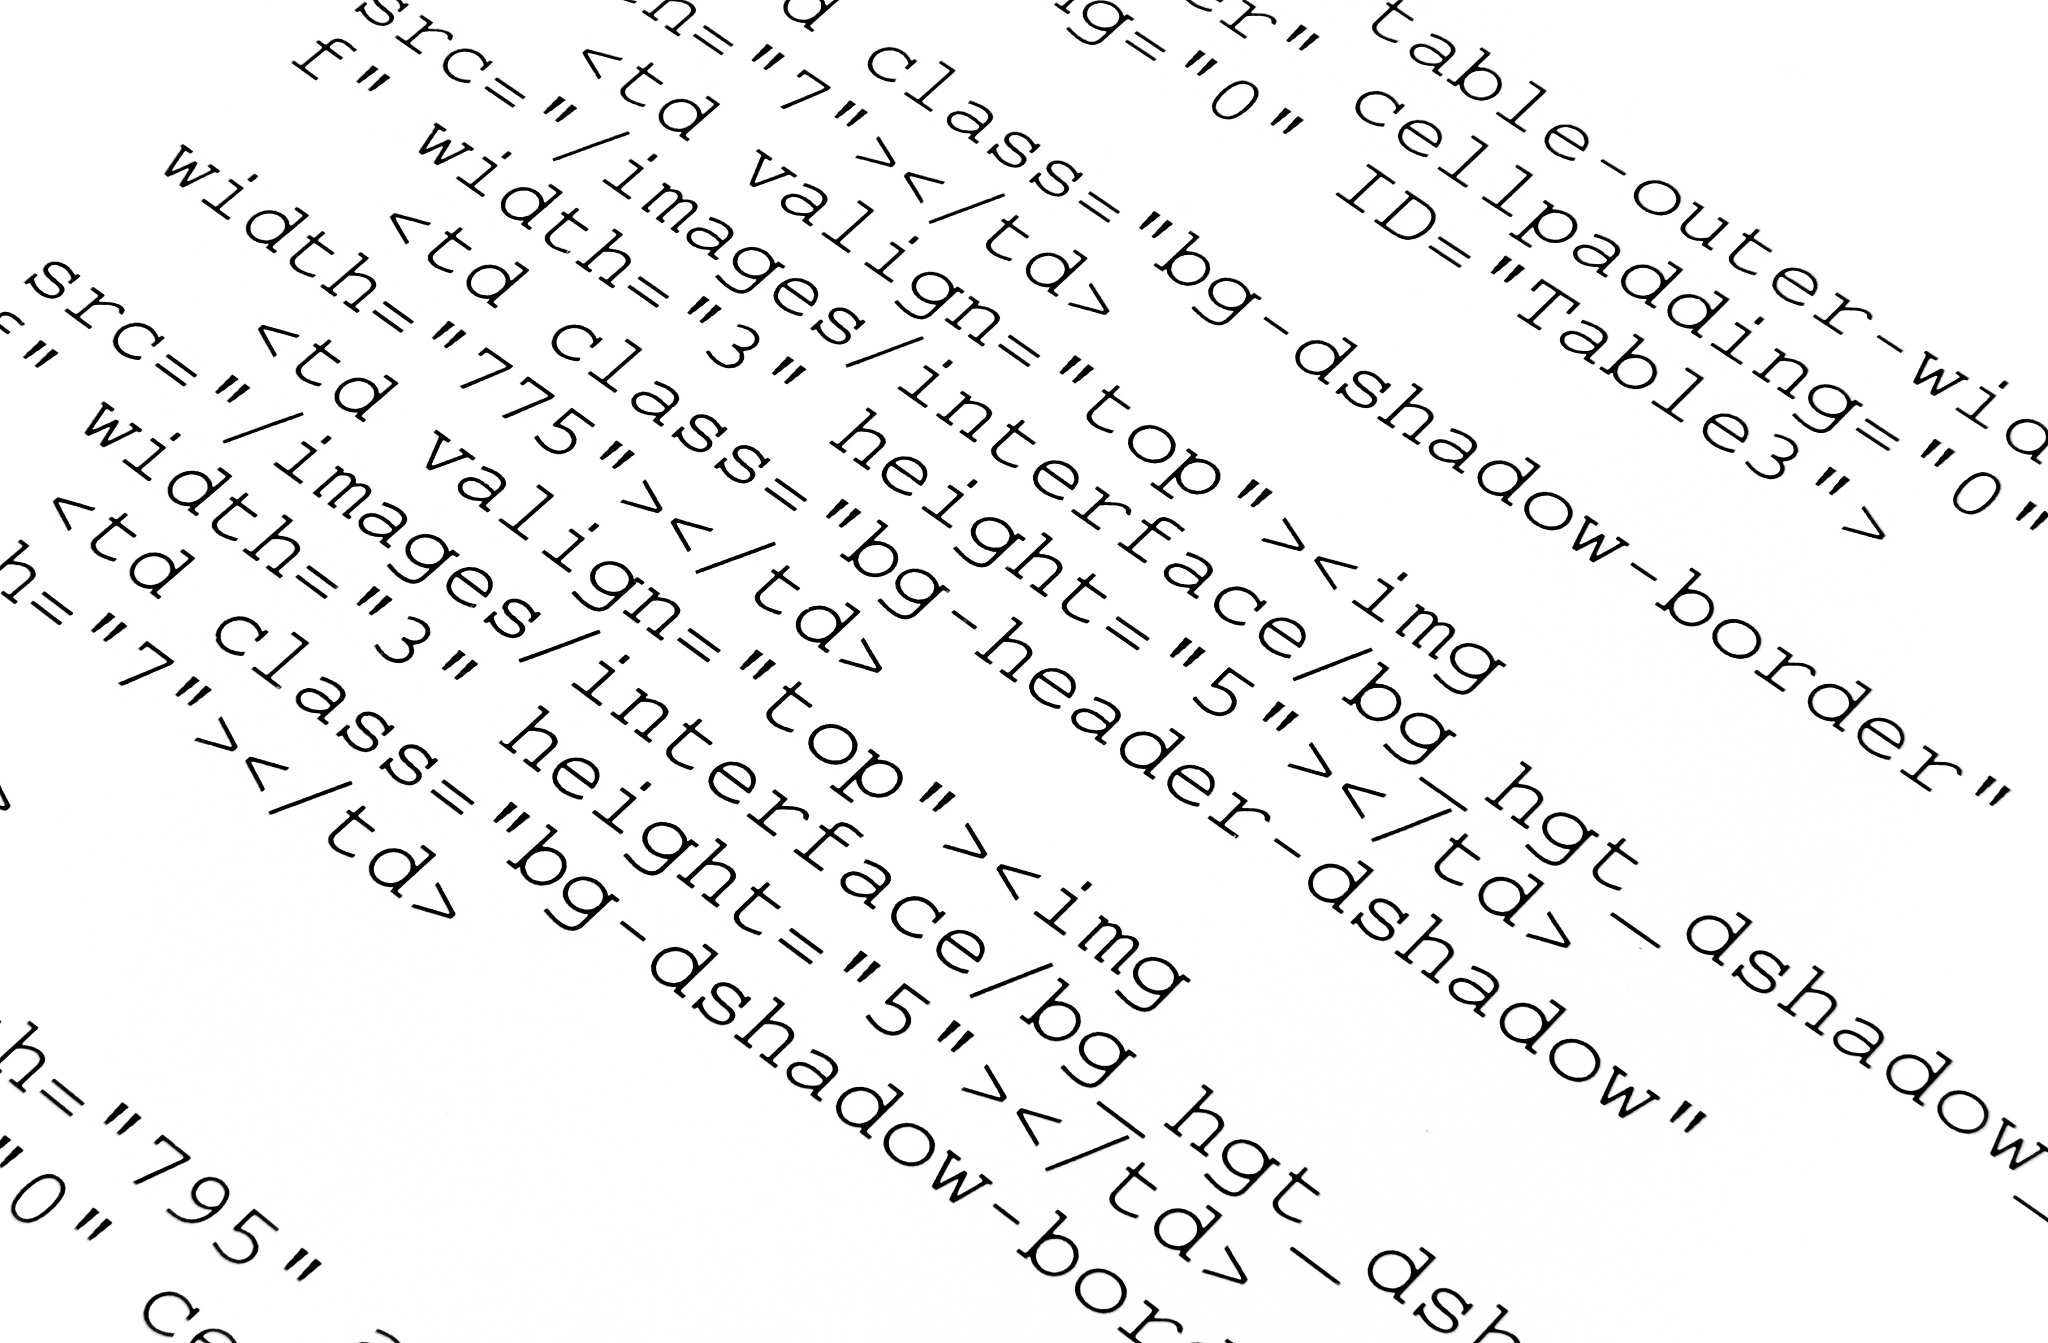 table-outer-wid
er" cellpadding="0"
ng="0" ID="Table3">
d class="bg-dshadow-border"
h="7"></td>
<td valign="top"><img
src="/images/interface/bg_hgt_dshadow_
f" width="3" height="5"></td>
<td class="bg-header-dshadow"
width="775"></td>
<td valign="top"><img
src="/images/interface/bg_hgt_dsh
f" width="3" height="5"></td>
<td class="bg-dshadow-bor
h="7"></td>
>
h="795"
"0" ce